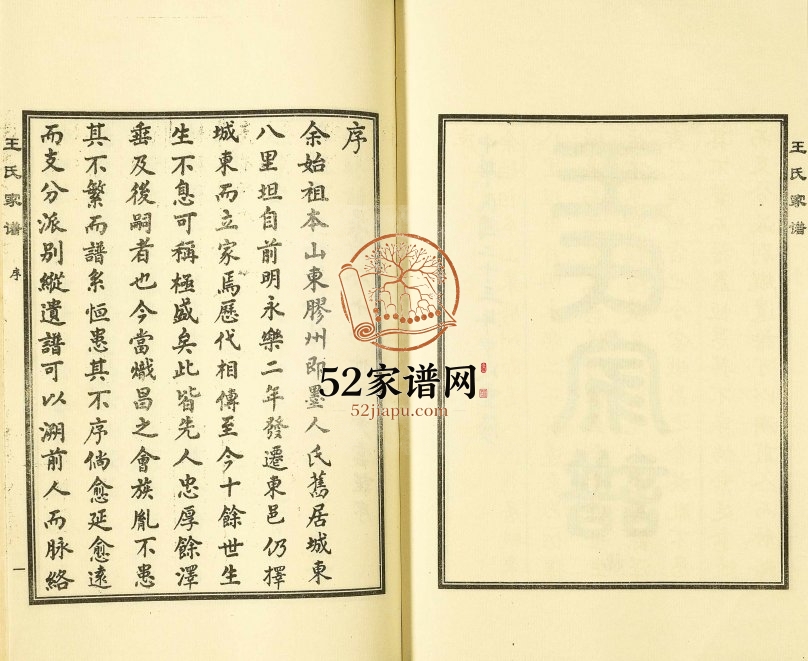 王氏家譜
序
余始祖本山東膠州即墨人氏舊居城東
八里坦自前明永樂二年發遷東邑仍擇
城東而立家焉歷代相傳至今十餘世生
生不息可稱極盛矣此皆先人忠厚餘澤
垂及後嗣者也今當熾昌之會族胤不患
其不繁而譜系恒患其不序倘愈延愈遠
而支分派别縱遺譜可以溯前人而脉絡
王氏家譜
序
一
52家谱网
52jiapu.com